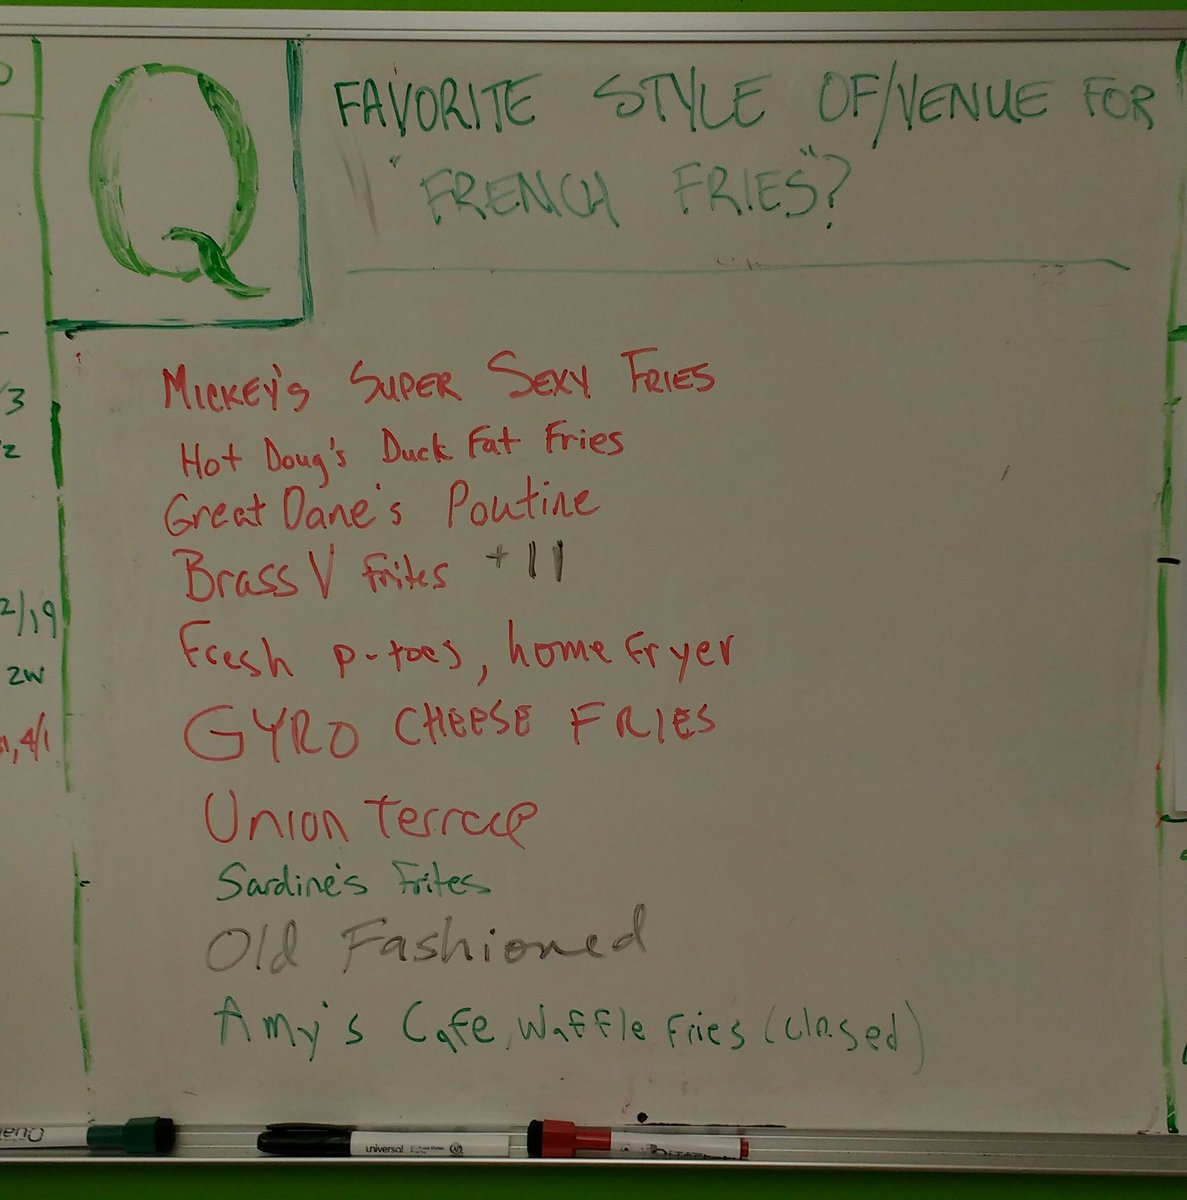 Q
FAVORITE STYLE OF/VENUE FOR
"FRENCH FRIES"?
MICKEY'S SUPER SEXY FRIES
Hot Doug's Duck Fat Fries
Great Dane's Poutine
Brass V frites +11
Fresh p-toes, home fryer
GYRO CHEESE FRIES
Union Terrace
Sardine's Frites
Old Fashioned
Amy's Cafe, Waffle Fries (closed)
/3
2/19
2W
4/1
universal